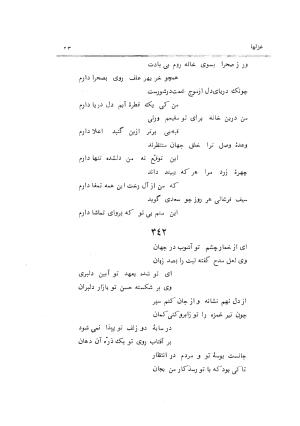 غزلها
۲۳
ور ز صحرا بسوی خانه روم بی یادت
همچو خر بهر علف روی بصحرا دارم
چونکه دریای دل از موج غمت در شورست
من کی یک قطره آبم دل دریا دارم
من درین خانه برای تو مقیمم ورنی
قبه‌یی برتر ازین گنبد اعلا دارم
وعدهٔ وصل ترا خلق جهان منتظرند
این توقع نه من دلشده تنها دارم
چهرهٔ زرد مرا هر که ببیند داند
که من از آل رخت این همه تمغا دارم
سیف فرغانی هر روز چو سعدی گوید
این منم بی تو که پروای تماشا دارم
۳۴۲
ای از خمار چشم تو آشوب در جهان
وی لعل مدح گفته لبت را بصد زبان
ای تو شده بعهد تو آیین دلبری
وی بر شکسته حسن تو بازار دلبران
از دل نهم نشانه و از جان کنم سپر
چون تیر غمزه را تو زابرو کنی کمان
در سایهٔ دو زلف تو پیدا نمی شود
بر آفتاب روی تو یک ذره آن دهان
جانست بوسهٔ تو و مردم در انتظار
تا کی بود که با تو رسد کار من بجان